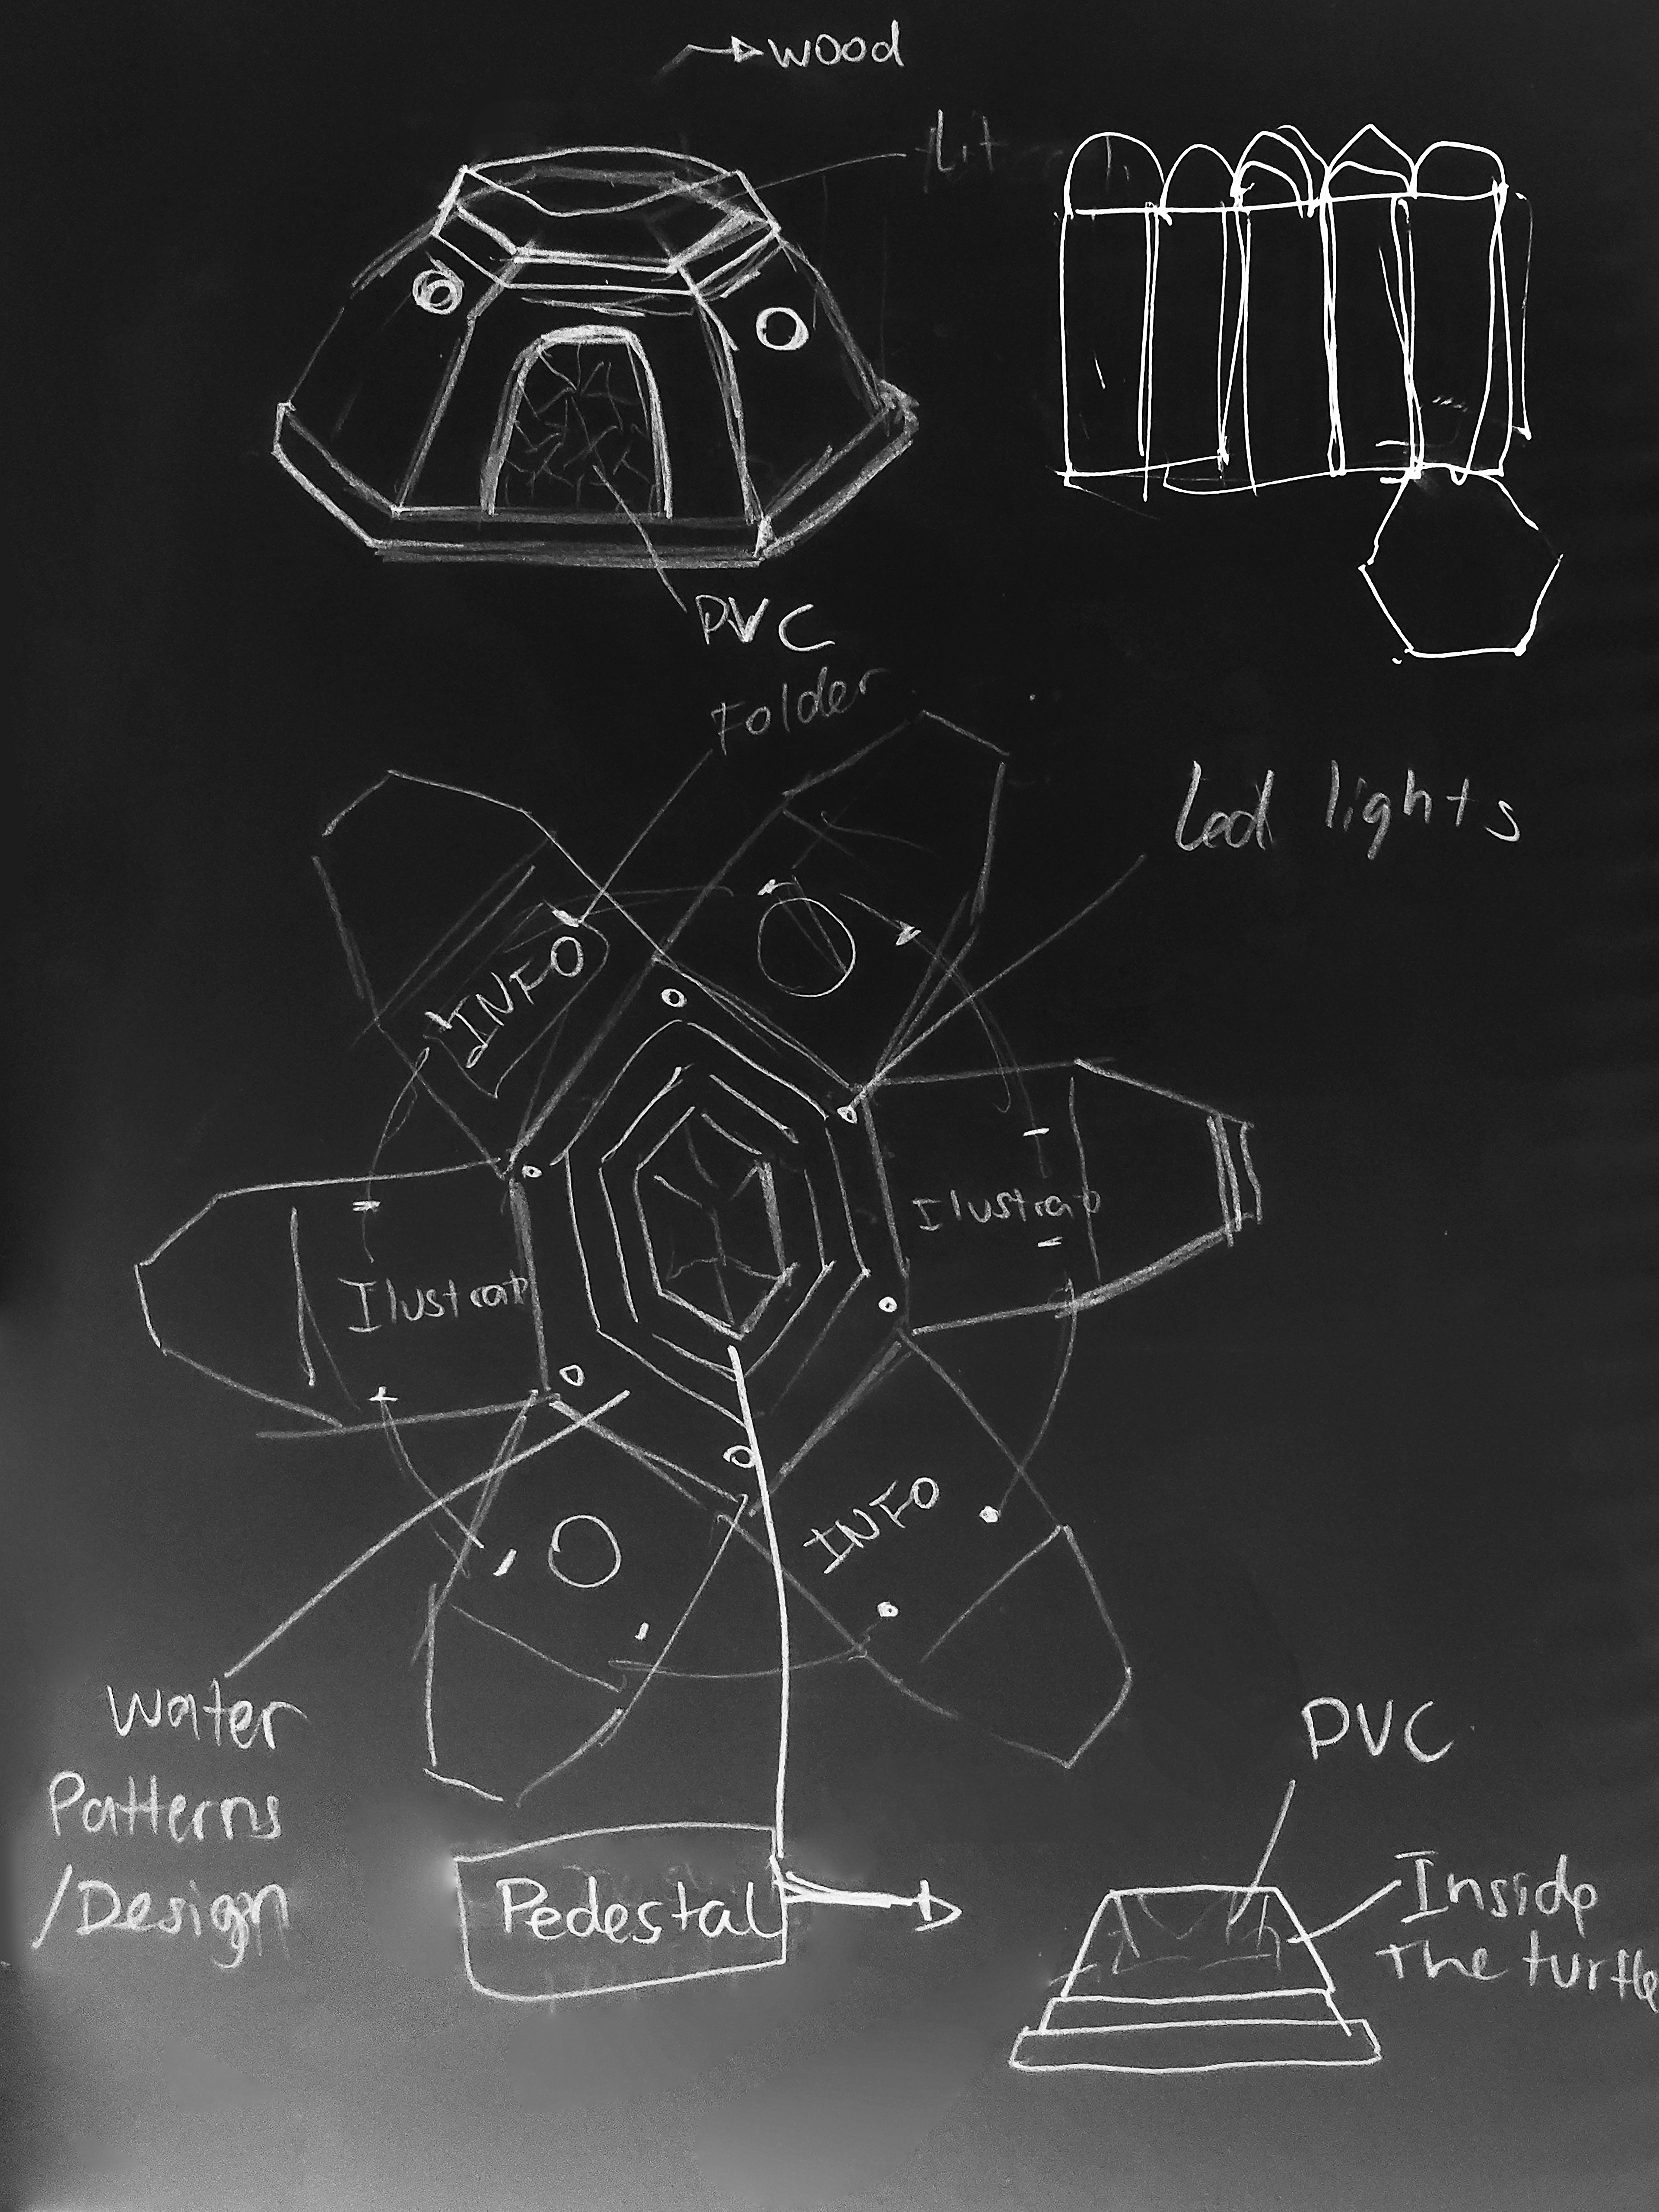 wood
PVC
Folder
Led lights
INFO
Ilustrat
Ilustrat
INFO
Water
Patterns
/Design
Pedestal
PVC
Inside
The turtle